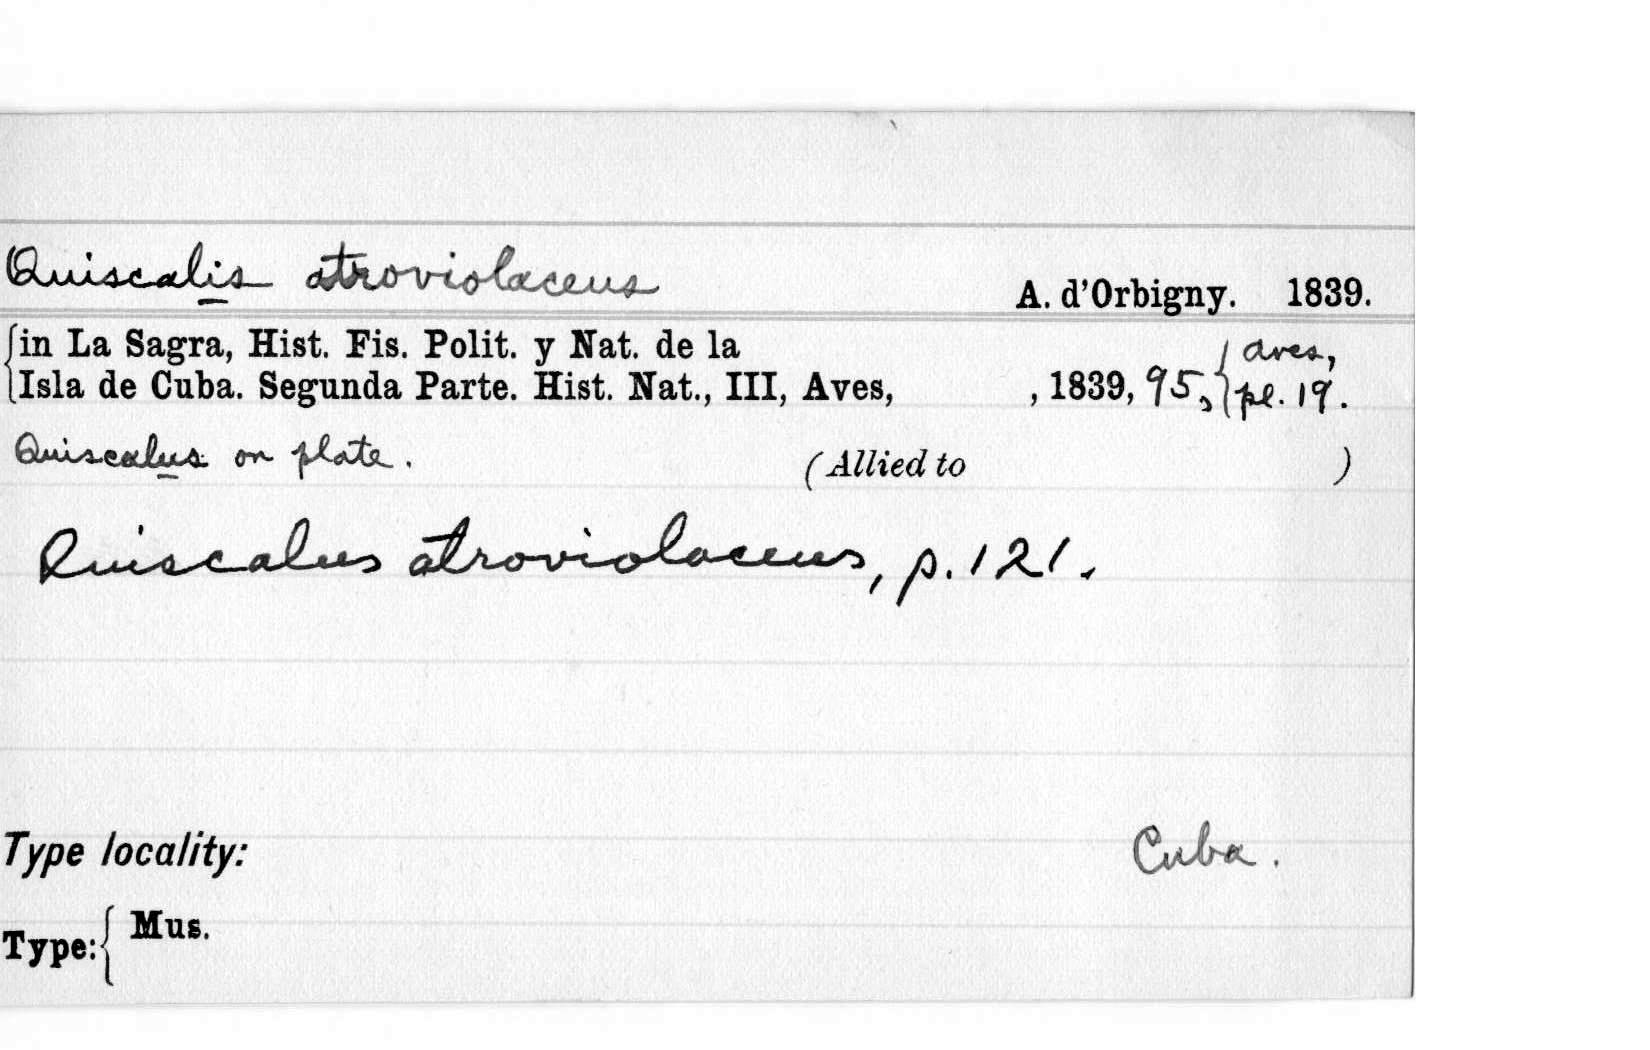 Quiscalis atroviolaceus A. d'Orbigny. 1839.
in La Sagra, Hist. Fis. Polit. y Nat. de la
Isla de Cuba. Segunda Parte. Hist. Nat., III, Aves, , 1839, 95, { Aves, pl. 19.
Quiscalus on plate. (Allied to )
Quiscalus atroviolaceus, p. 121.
Type locality: Cuba.
Type: { Mus.